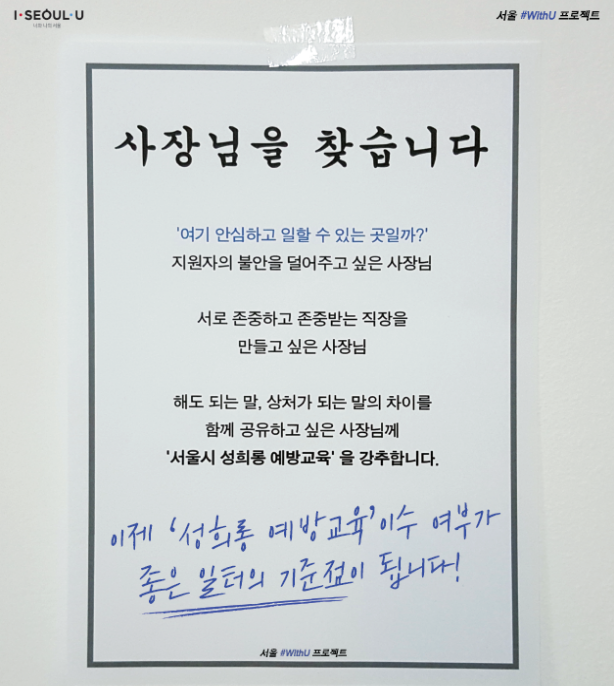 I·SEOUL·U
너와 나의 서울
서울 #WithU 프로젝트
사장님을 찾습니다
'여기 안심하고 일할 수 있는 곳일까?'
지원자의 불안을 덜어주고 싶은 사장님
서로 존중하고 존중받는 직장을
만들고 싶은 사장님
해도 되는 말, 상처가 되는 말의 차이를
함께 공유하고 싶은 사장님께
'서울시 성희롱 예방교육' 을 강추합니다.
이제 '성희롱 예방교육' 이수 여부가
좋은 일터의 기준점이 됩니다!
서울 #WithU 프로젝트